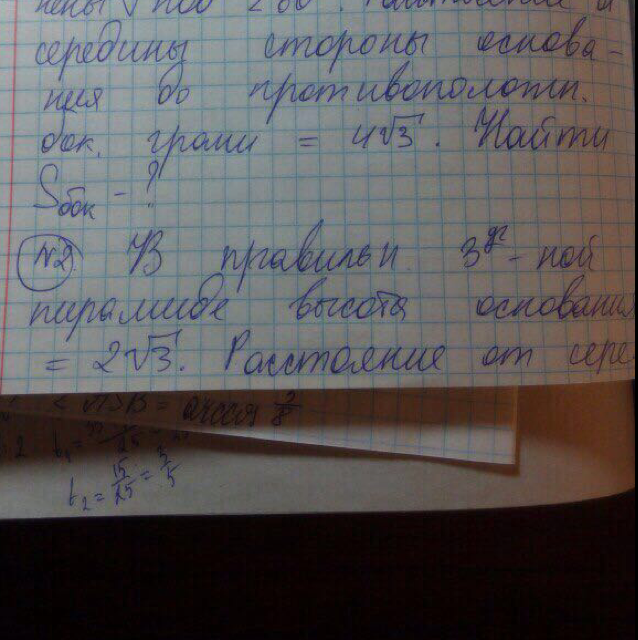 под ∠ 60°.
середины стороны основа-
ния до противоположн.
бок. грани = 4√3. Найти
Sбок - ?
№2. В правильн. 3уг-ной
пирамиде высота основания
= 2√3. Расстояние от сере
∠ ASB =
t₂ = 15/25 = 3/5